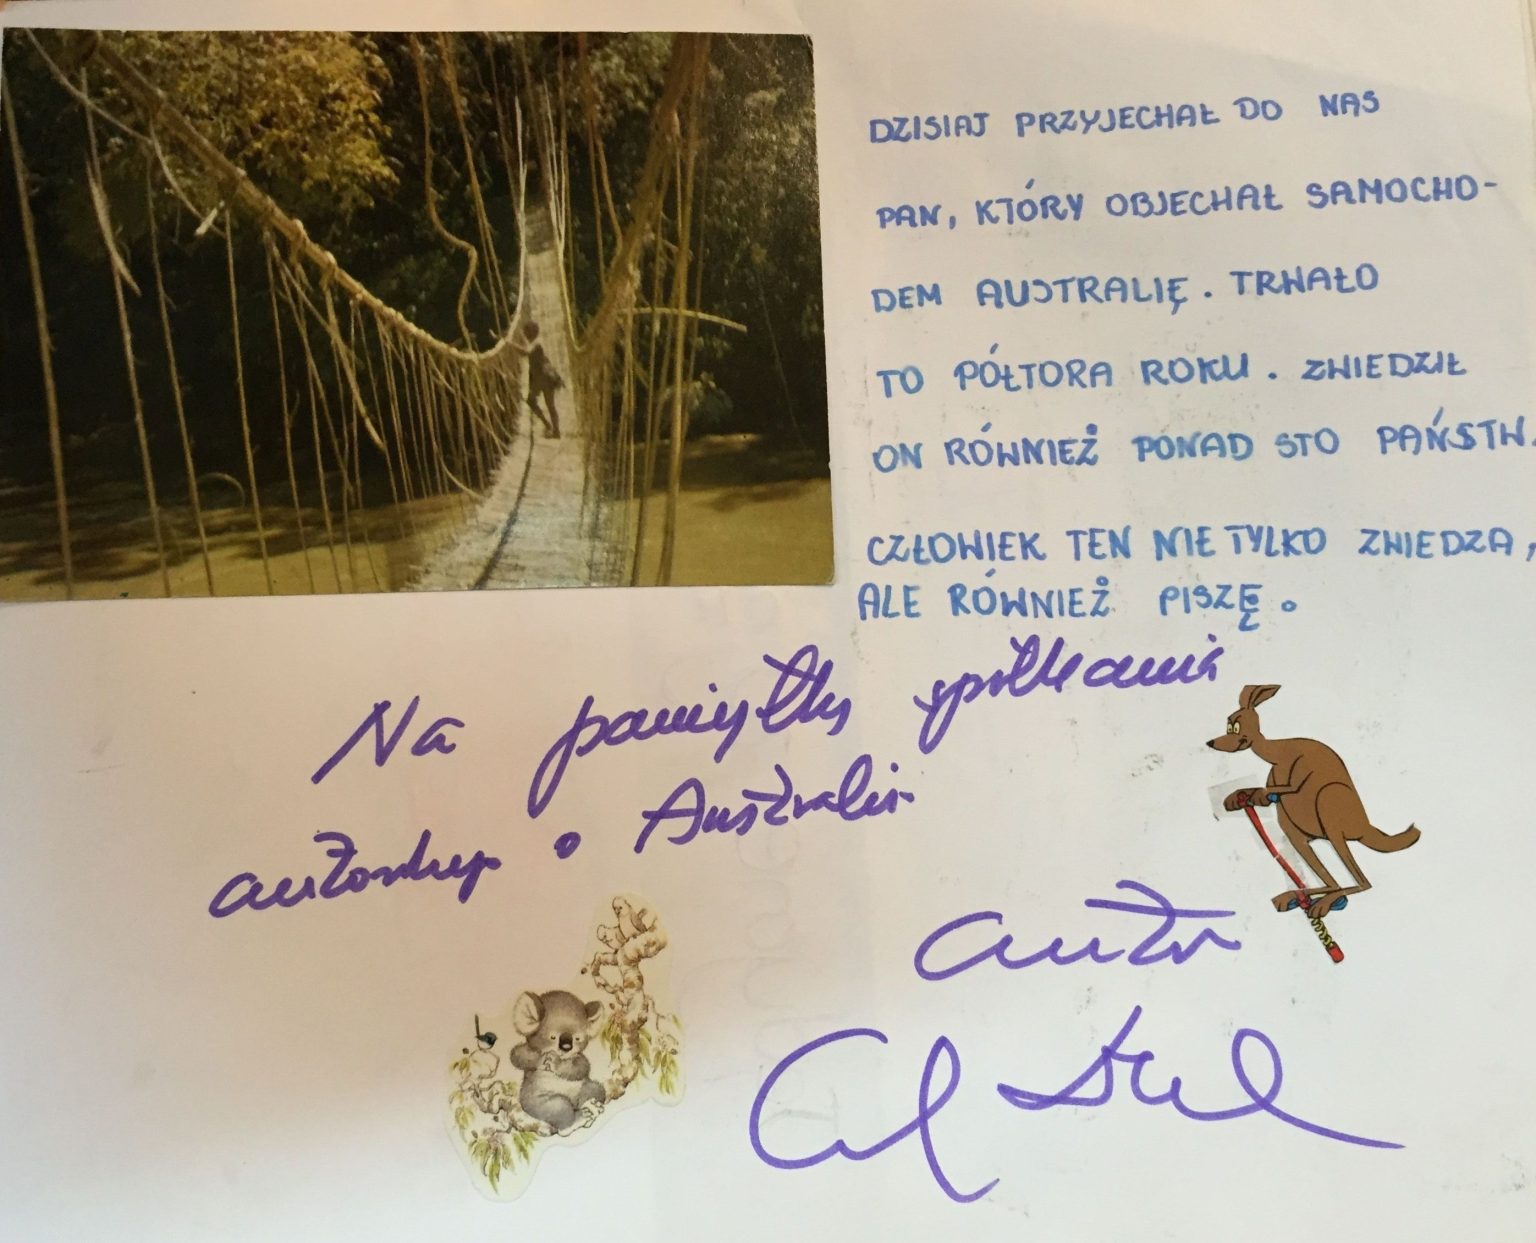 DZISIAJ PRZYJECHAŁ DO NAS
PAN, KTÓRY OBJECHAŁ SAMOCHO-
DEM AUSTRALIĘ. TRWAŁO
TO PÓŁTORA ROKU. ZWIEDZIŁ
ON RÓWNIEŻ PONAD STO PAŃSTW.
CZŁOWIEK TEN NIE TYLKO ZWIEDZA,
ALE RÓWNIEŻ PISZĘ.
Na pamiątkę spotkania
o Australii
autor